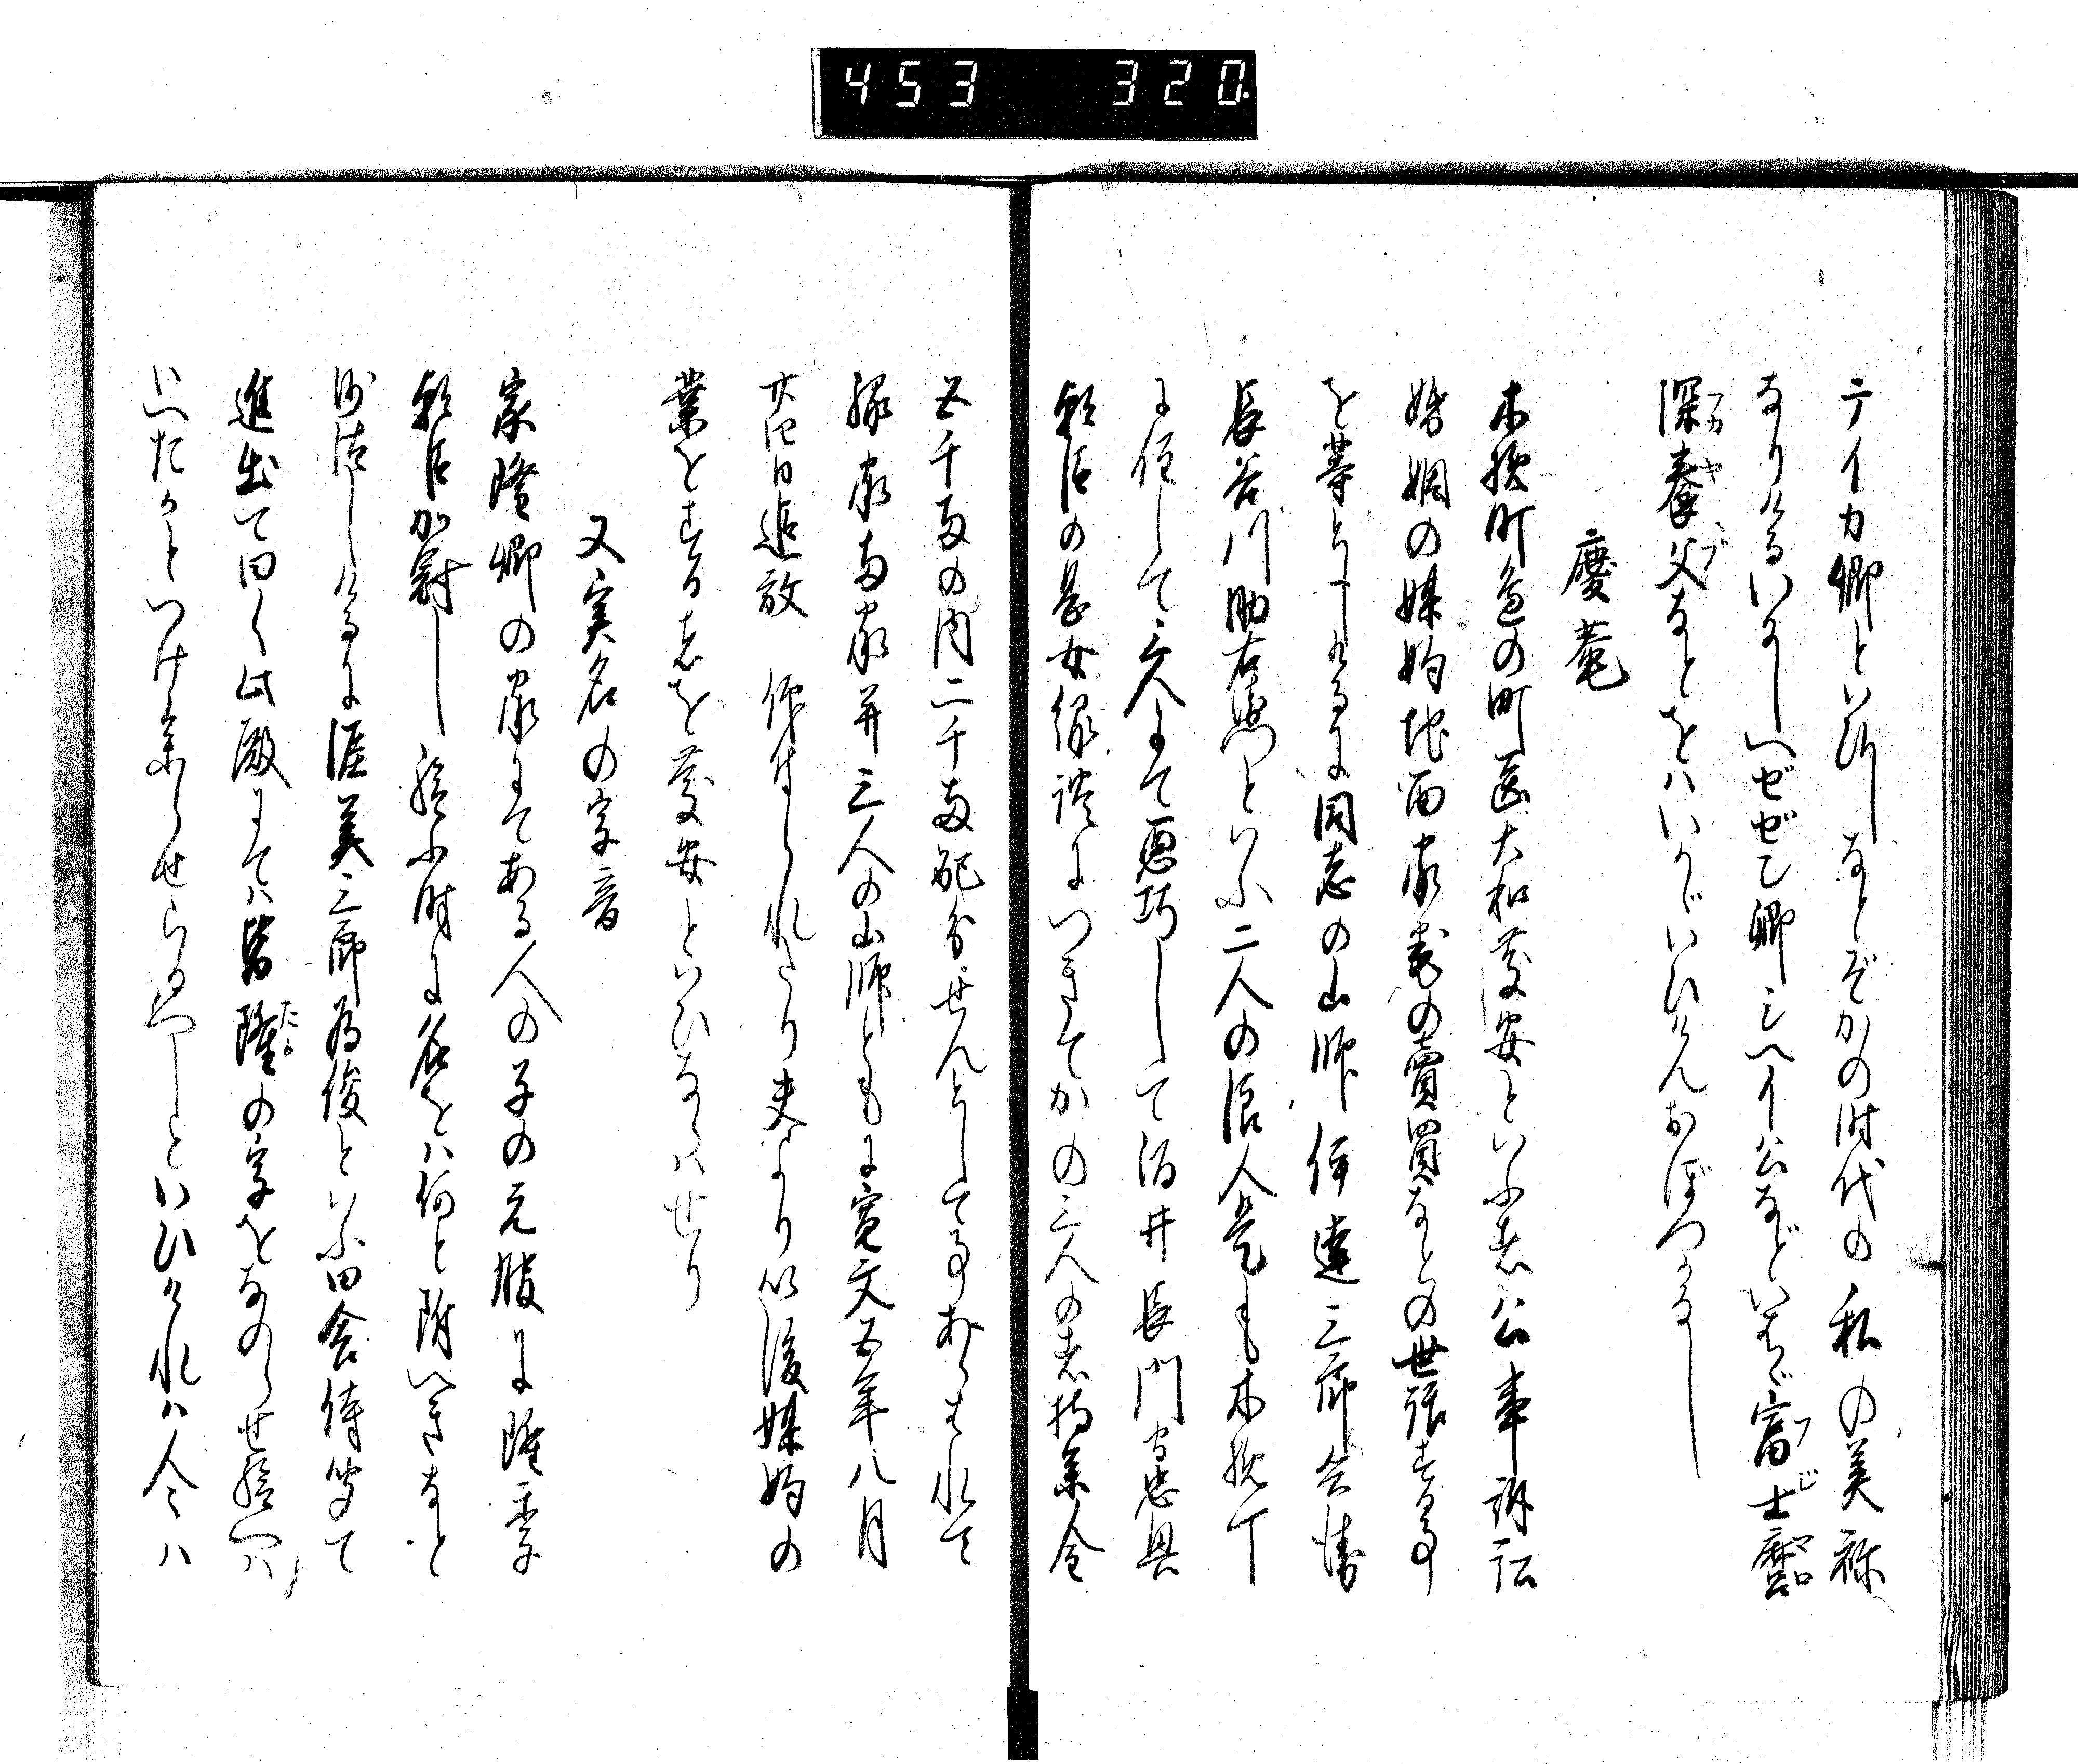 453 320
テイカ卿といひしなとぞかの時代の私の美称
なりけるいにしへゼゼ乙卿シヘイ公などいはゞ富士麿
深養父なとをハいかゞいひけんおぼつかなし
慶菴
木挽町邊の町医大和慶安といふ者公事訴訟
婚姻の媒妁地面家敷の賣買なとの世話する事
を業としけるに同志の山師伊達三郎兵衛
長谷川助右衛門といふ二人の浪人是も木挽丁
に住して三人にて悪巧して酒井長門守忠興
朝臣の息女縁談につきてかの三人の者持参金
五千両の内二千両配分せんとして事あらはれて
縁家両家并三人の山師ともに寛文五年八月
廿七日追放 仰付られたり夫より以後媒妁の
業をする者を慶安といひならハせり
又実名の字音
家隆卿の家にてある人の子の元服に隆季
朝臣加冠し給ふ時に名をハ何と附へきなと
沙汰しけるに渥美三郎為俊といふ田舎侍笑て
進出て曰く此殿にてハ皆隆の字をなのらせ給へハ
いへたかとつけ参らせらるへしといひけれハ人々ハ